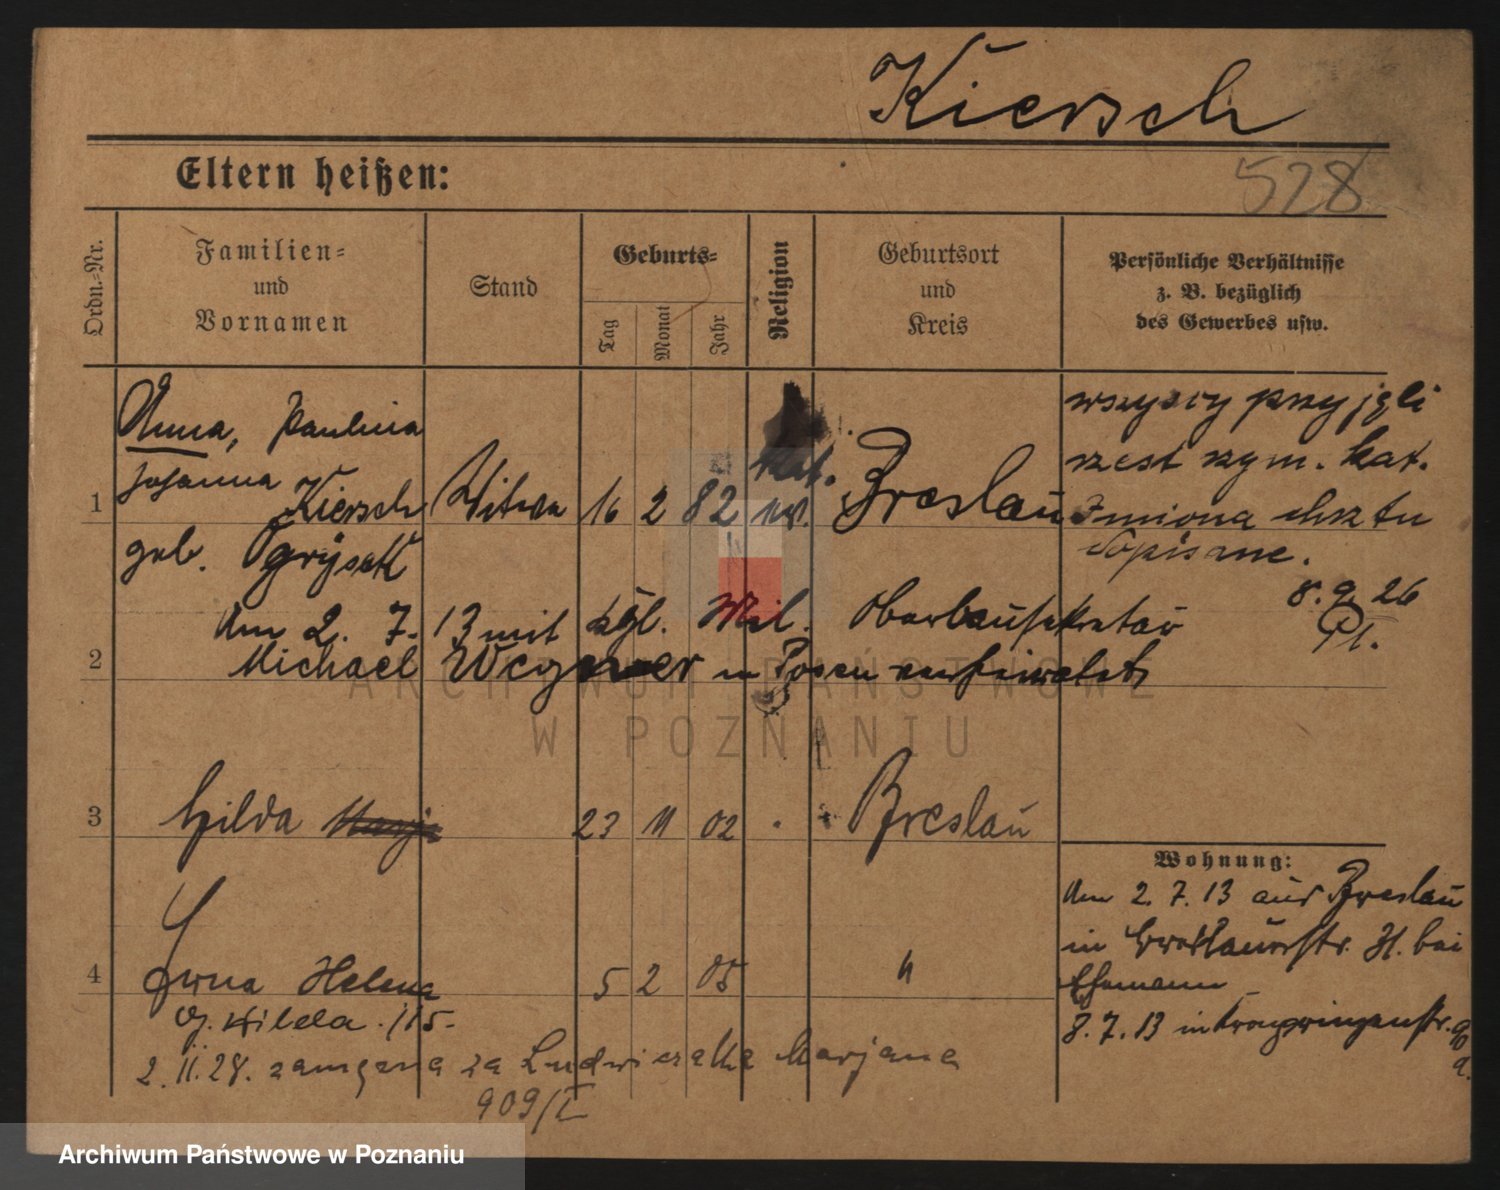 Kiersch
528
Eltern heißen:
Ordn.-Nr.
Familien-
und
Vornamen
Stand
Geburts-
Tag
Monat
Jahr
Religion
Geburtsort
und
Kreis
Persönliche Verhältnisse
z. B. bezüglich
des Gewerbes usw.
Anna, Paulina
Johanna
1 Kiersch Witwe 16 2 82 kat. Breslau
geb.
wszyscy przyjęli
rzest rzym. kat.
Imiona chrztu
dopisane.
8. 9. 26
Am 2. 7. 13 mit kgl. Mil. Oberbausekretär
2 Michael Wegener in Posen verheiratet
3 Hilda 23 11 02 Breslau
4 Erna Helena 5 2 05 "
Hilda
2. II. 28. zamężna za Ludwiczaka Marjana
909/I
Wohnung:
Am 2. 7. 13 aus Breslau
in bei
Ehemann
8. 7. 13. in Kronprinzenstr. 90
a.
ARCHIWUM PAŃSTWOWE
W POZNANIU
Archiwum Państwowe w Poznaniu